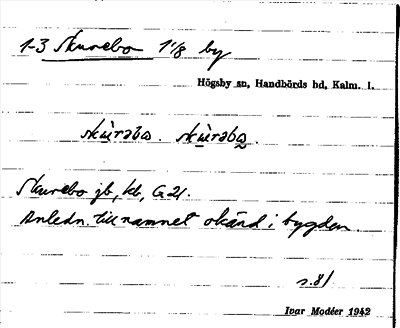 1-3 Skurebo 1 1/8 by
Högsby sn, Handbörds hd, Kalm. l.
skùrəbω. skùrəbω.
Skurebo jb, kb, G 21.
Anledn. till namnet okänd i bygden.
s. 81
Ivar Modéer 1942